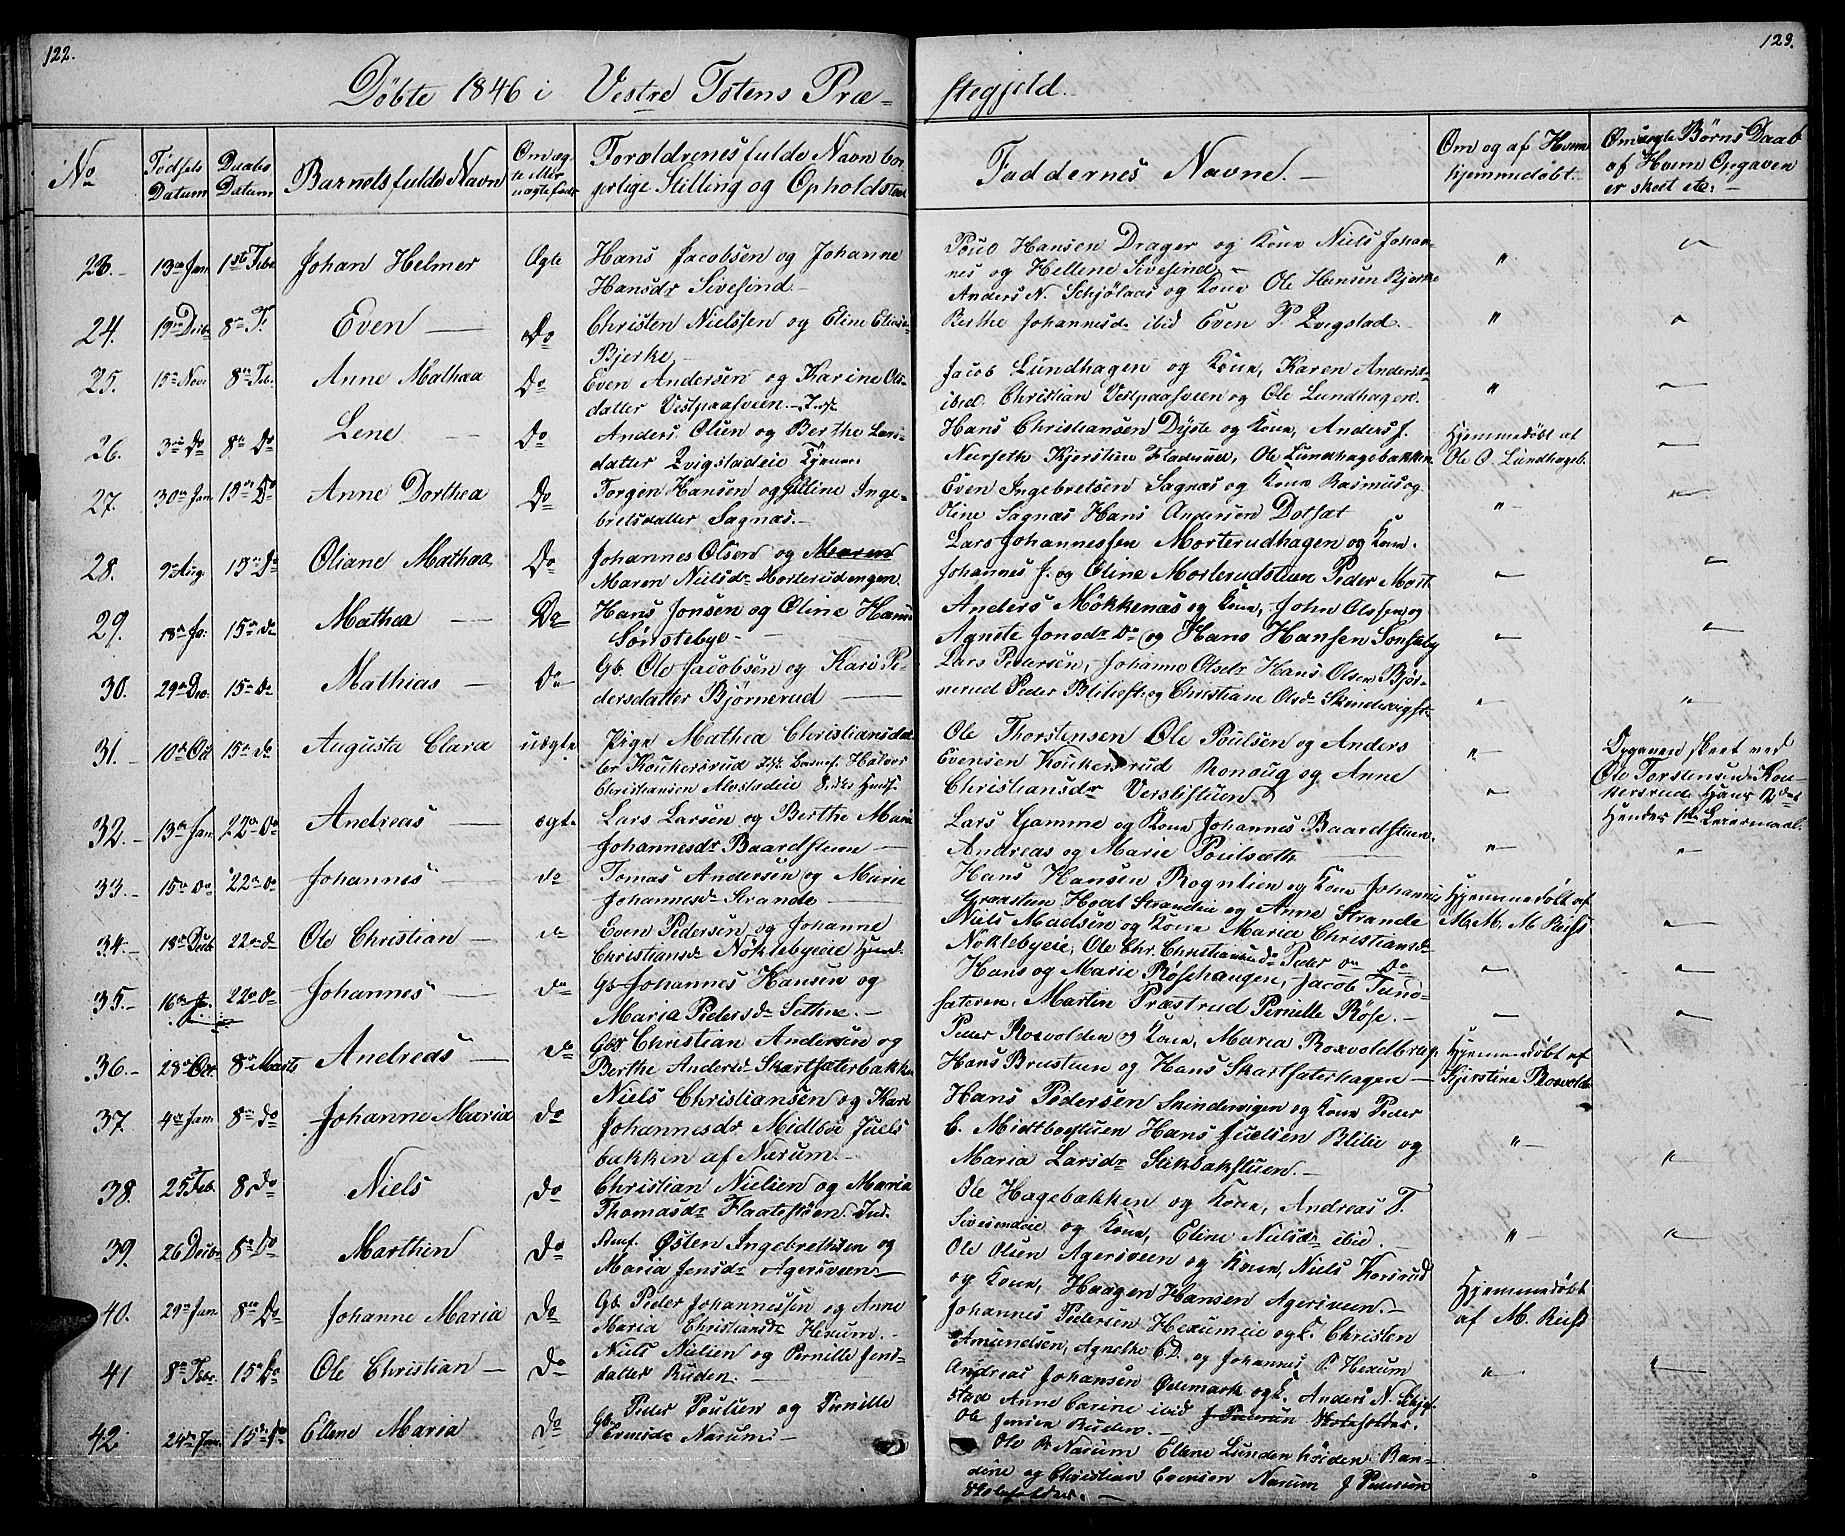 122.
123.
Döbte 1846 i Vestre Totens Præ-
stegjeld.
No
Födsels Datum
Daabs Datum
Barnets fulde Navn
Om ægte eller uægte født
Forældrenes fulde Navn bor-
gerlige Stilling og Opholdsted
Faddernes Navne.
Om og af Hvem hjemmedöbt.
Om uægte Børns Daab
af Hvem Opgaven
er skeet etc:
23. 13de Jan 1ste Febr Johan Helmer Ægte
Hans Jacobsen og Johanne
Hansdr Sivesind
Poul Hansen Drager og Kone Niels Johan-
nes og Hellene Sivesind
24. 19de Decb 8de F. Even Do
Christen Nielssen og Eline
Bjerke
Anders N. Schjølaas og Kone Ole Hansen Bjerke
Berthe Johannesd ibid Even P. Qvigstad
25. 15de Nov. 8de Feb. Anne Mathea Do
Even Andersen og Karine Ols-
datter Vestpaasveen
Jacob Lundhagen og Kone, Karen Andersd
ibid, Christian Vestpaasveen og Ole Lundhagen
26. 3de Do 8de Do Lene Do
Anders Olsen og Berthe Lars-
datter Qvigstadeie
Hans Christiansen Dyste og Kone, Anders J.
Narseth Kjerstine Fladerud, Ole Lundhagebakken
Hjemmedöbt af
Ole O. Lundhageb.
27. 30de Jan 15de Do Anne Dorthea Do
Torgen Hansen og Eline Inge-
bretsdatter Sagnæs
Even Ingebretsen Sagnæs og Kone Rasmus og
Oline Sagnæs Hans Andersen Dotset
28. 9de Aug. 15de Do Oliane Mathea Do
Johannes Olsen og Maren
Maren Nielsdr Morterudengen.
Lars Johannessen Morterudhagen og Kone.
Johannes J. og Oline Morterudstuen Peder Mort.
29. 18de Ja. 15de do Mathea Do
Hans Jonsen og Oline Hansd
Sönstebye
Anders Møkkenæs og Kone, John Olsen og
Agnete Jonsdr Do og Hans Hansen Sonsteby
30. 29de Dec. 15de Do Mathias Do
Gb. Ole Jacobsen og Kari Pe-
dersdatter Bjørnerud
Lars Pedersen, Johanne Olsdr Hans Olsen Bjør-
nerud Peder Blilieft og Christiane Olsd
31. 10de Oct 15de do Augusta Clara uægte
Pige Mathea Christiansdat-
ter Koukersrud Halvor
Christiansen Alvstadeie
Ole Thorstensen Ole Poulsen og Anders
Evensen Koukersrud Ronnoug og Anne
Christiansdr Verslistuen
Opgaven skeet ved
Ole Torstensen Kou-
kersrud Hans 2det
Hendes 1ste Leiermaal.
32. 13de Jan 22de Do Andreas ægte
Lars Larsen og Berthe Marie
Johannesdr Baardstuen
Lars Gamme og Kone Johannes Baardstuen
Andreas og Marie Poulsæth
33. 15de Do 22de Do Johannes do
Tomas Andersen og Marie
Johannesdr Strande
Hans Hansen Rogntien og Kone Johannes
Graasten Hoel Strandeie og Anne Strande
Hjemmedöbt af
M. M. M. Reiss
34. 18de Decb 22de do Ole Christian do
Even Pedersen og Johanne
Christiansdr Nöklebyeie
Niels Madsen og Kone Maria Christiansdr
Noklebyeie, Ole Chr. Christiansen Do Peder Do Do
35. 16de J. 22de Do Johannes do
Gb Johannes Hansen og
Maria Pedersdr Sethne
Hans og Marie Röisehaugen, Jacob Tand-
sæteren. Martin Præstrud Pernille Röse.
36. 28de Oct. 8de Marts Andreas do
Gbr. Christian Andersen og
Berthe Andersd Skartsaterbakken
Peder Roxvolden og Kone, Maria Roxvoldbræg
Hans Brustuen og Hans Skartsaterhagen
Hjemmedöbt af
Kjerstine Roxvold
37. 4de Jan 8de do Johanne Maria do
Niels Christiansen og Kari
Johannesdr Midtböe Juels
bakken af Narum
Hans Pedersen Skindervigen og Kone Peder
C. Midtböestuen Hans Juelsen Blilie og
Maria Larsdr Stikbakstuen.
38. 25 Feb. 8 do Niels do
Christian Nielsen og Maria
Thomasdr Flaatestuen. Ind.
Ole Hagebakken og Kone, Andreas T.
Sivesindeie og Kone, Eline Nielsdr ibid.
39. 26 Decbr 8de Do Marthien do
Østen Ingebretsen og
Maria Jensdr Agersveen
Ole Olsen Agersveen og Kone, Niels Korsrud
og Kone, Haagen Hansen Agersveen.
40. 29de Jan 8de Do Johanne Maria do
Gb Peder Johannessen og Anne
Maria Christiansdr Hexum.
Johannes Pedersen Hexumeie og K. Christen
Amundsen, Agnethe C.D. og Johannes P. Hexum
Hjemmedöbt
af M. Reiss
41 8de Febr. 15de Do Ole Christian Do
Niels Nielsen og Pernille Jens-
datter Ruden.
Andreas Johansen Ødemark og K. Anders N.
stad Anne Carine ibid J. Pedersen Skoleholder.
Ole Jensen Ruden.
42. 24de Jan. 15de Do Ellene Maria Do
Gb. Peder Poulsen og Pernille
Narum
Ole P. Narum Ellene Lunden höiden Ran-
dine og Christian Evensen Narum J Pedersen
Skoleholder.